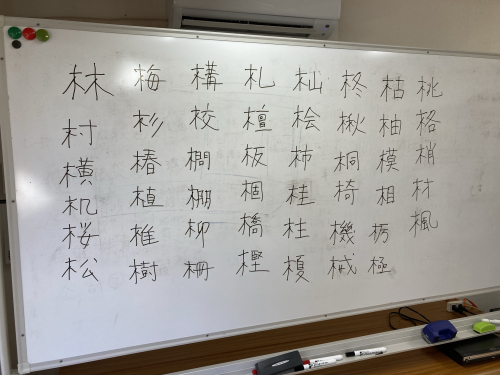 林 梅 構 札 杣 柊 枯 桃
村 杉 校 檀 桧 楸 柚 格
横 椿 桐 板 柿 桐 模 梢
机 植 棚 梱 桂 椅 相 材
桜 椎 柳 橋 柱 機 栃 楓
松 樹 柵 樫 榎 械 極